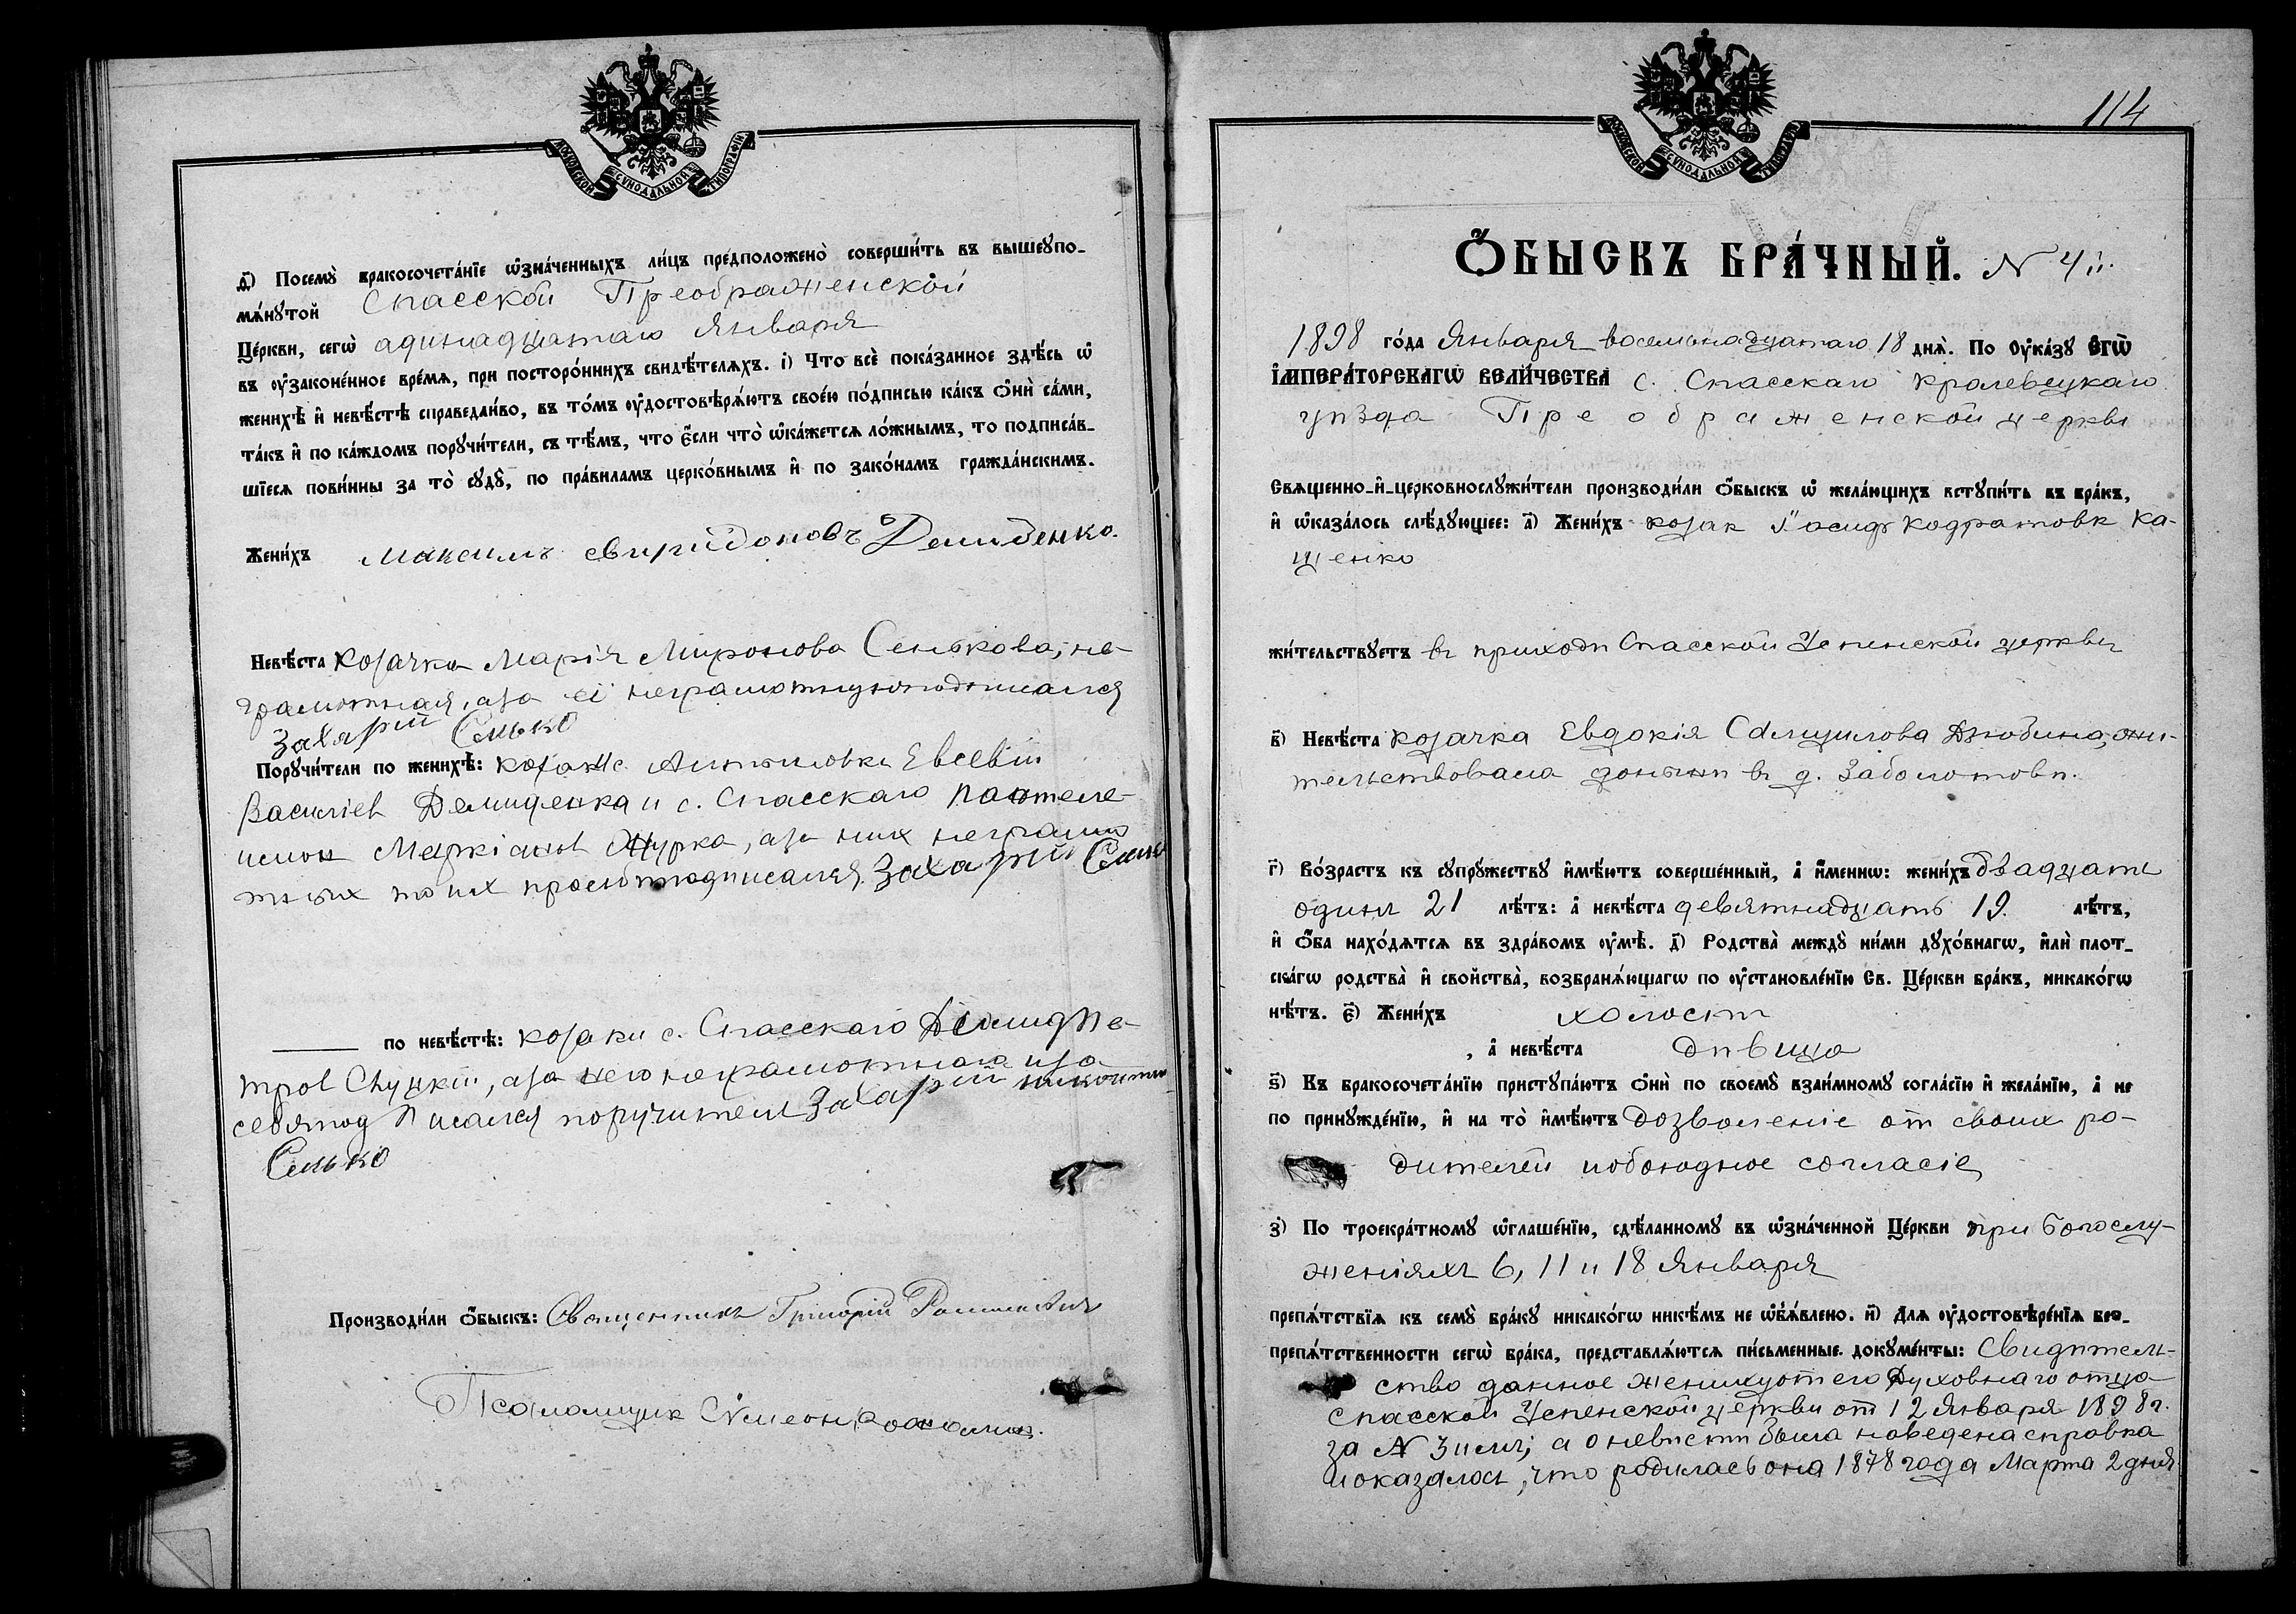 МОСКОВСКОЙ СѴНОДАЛЬНОЙ ТИПОГРАФІИ
д҃) Посемꙋ̀ бракосочета́нїе ѡ҆зна́ченныхъ ли́цъ предположено̀ соверши́ть въ вышеꙋпо-
мѧ́нꙋтой Спасской Преображенской
Це́ркви, сегѡ̀ адинадцатаго Января
въ ᲂу҆законе́нное вре́мѧ, при посторо́ннихъ свидѣ́телѧхъ. і҃) Что всѐ пока́занное здѣ́сь ѡ҆
женихѣ̀ и҆ невѣ́стѣ справедли́во, въ то́мъ ᲂу҆достовѣрѧ́ютъ свое́ю по́дписью ка́къ ѻ҆нѝ са́ми,
та́къ и҆ по ка́ждомъ порꙋчи́тели, съ тѣ́мъ, что є҆́сли что̀ ѡ҆ка́жетсѧ ло́жнымъ, то подписа́в-
шїесѧ пови́нны за то̀ сꙋдꙋ̀, по пра́виламъ церко́внымъ и҆ по зако́намъ гражда́нскимъ.
Жени́хъ Максимъ Свиридоновъ Демиденко.
Невѣ́ста козачка Марія Миронова Сенькова, не-
грамотная, а за её неграмотную подписался
Захарій Сенько
Порꙋчи́тели по женихѣ̀: козаки с. Евсевій
Василіев Демиденка и с. Спасскаго Пантеле-
имон Маркіанов Журка, а за них неграмо
тных по их прозьбѣ подписался Захарій Сенько
по невѣ́стѣ: козаки с. Спасскаго Демид Пе-
тров Слуцкій, а за него неграмотнаго и за
себя под Писался поручитель Захарій
Сенько
Производи́ли ѻ҆́быскъ: Священникъ Григорій
Псаломщик Симеон
114
МОСКОВСКОЙ СѴНОДАЛЬНОЙ ТИПОГРАФІИ
Ѻ҆́БЫСКЪ БРА́ЧНЫЙ. N 4й.
1898 го́да Января восемьнадцатаго 18 днѧ̀. По Оу҆ка́зꙋ Е҆ГѠ̀
И҆МПЕРА́ТОРСКАГѠ ВЕЛИ́ЧЕСТВА с. Спасскаго Кролевецкаго
уѣзда Преображенской церкви
Свѧще́нно-и҆-церковнослꙋжи́тели производи́ли ѻ҆́быскъ ѡ҆ жела́ющихъ встꙋпи́ть въ бра́къ,
и҆ ѡ҆каза́лось слѣ́дꙋющее: а҃) Жени́хъ козак Іосиф Кодратовъ Ка-
щенко
жи́тельствꙋетъ въ приходѣ Спасской Успенской церкви
в҃) Невѣ́ста козачка Евдокія Самуилова Дзюбина, жи-
тельствовала донынѣ въ д. Заболотовѣ.
г҃) Во́зрастъ къ сꙋпрꙋ́жествꙋ и҆мѣ́ютъ соверше́нный, а҆ и҆́менно: жени́хъ двадцать
одинъ 21 лѣ́тъ: а҆ невѣ́ста девятнадцать 19. лѣ́тъ,
и҆ ѻ҆́ба нахо́дѧтсѧ въ здра́вомъ ᲂу҆мѣ̀. д҃) Родства̀ междꙋ̀ ни́ми дꙋхо́внагѡ, и҆лѝ плот-
ска́гѡ родства̀ и҆ свойства̀, возбранѧ́ющагѡ по ᲂу҆становле́нїю Св. Це́ркви бра́къ, никако́гѡ
нѣ́тъ. є҃) Жени́хъ холостъ
, а҆ невѣ́ста дѣвица
ѕ҃) Къ бракосочета́нїю пристꙋпа́ютъ ѻ҆нѝ по своемꙋ̀ взаи́мномꙋ согла́сїю и҆ жела́нїю, а҆ не
по принꙋжде́нїю, и҆ на то̀ и҆мѣ́ютъ дозволеніе от своих ро-
дителей и обоюдное согласіе
з҃) По троекра́тномꙋ ѡ҆глаше́нїю, сдѣ́ланномꙋ въ ѡ҆зна́ченной Це́ркви при Богослу-
женіяхъ 6, 11 и 18 Января
препѧ́тствїѧ къ семꙋ̀ бра́кꙋ никако́гѡ никѣ́мъ не ѡ҆б̾ѧ́влено. и҃) Длѧ ᲂу҆достовѣре́нїѧ без-
препѧ́тственности сегѡ̀ бра́ка, представлѧ́ютсѧ пи́сьменные докꙋме́нты: Свидѣтель-
ство данное жениху от его Духовнаго отца
Спасской Успенской церкви от 12 Января 1898 г.
за N 3 имъ; а о невѣсти была наведена справка
и оказалось, что родилась она 1878 года Марта 2 дня